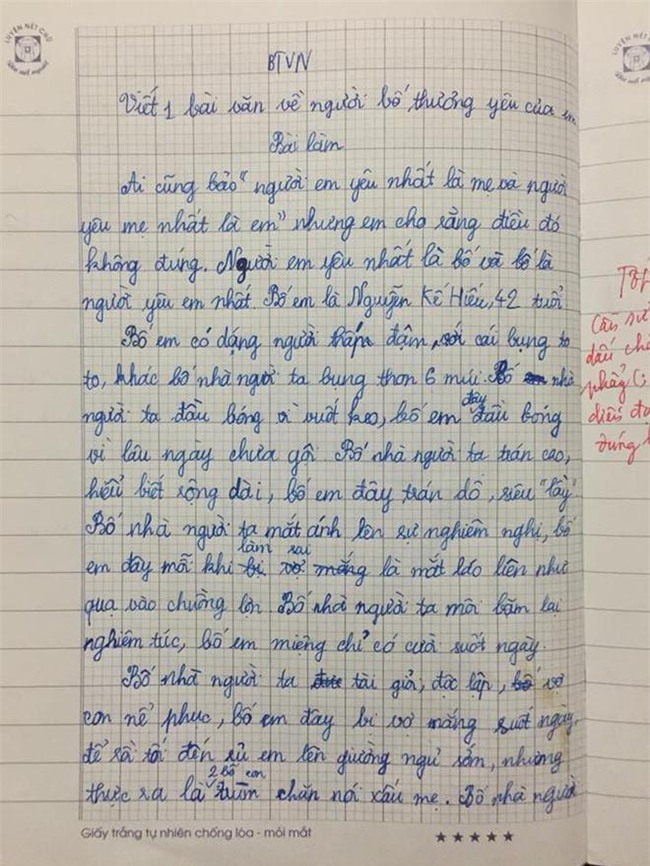 LUYỆN NÉT CHỮ
LUYỆN NÉT CHỮ
BTVN
Viết 1 bài văn về người bố thương yêu của em
Bài làm
Ai cũng bảo "người em yêu nhất là mẹ và người
yêu mẹ nhất là em" nhưng em cho rằng điều đó
không đúng. Người em yêu nhất là bố và bố là
người yêu em nhất. Bố em là Nguyễn Kế Hiếu, 42 tuổi
Bố em có dáng người thấp đậm, với cái bụng to
to, khác bố nhà người ta bụng thon 6 múi. Bố nhà
người ta đầu bóng vì vuốt keo, bố em đây đầu bóng
vì lâu ngày chưa gội. Bố nhà người ta trán cao,
hiểu biết rộng dài, bố em đây trán dô, siêu "lầy"
Bố nhà người ta mắt ánh lên sự nghiêm nghị, bố
em đây mỗi khi làm sai bị vợ mắng là mắt láo liên như
quạ vào chuồng lợn Bố nhà người ta môi bặm lại
nghiêm túc, bố em miệng chỉ có cười suốt ngày.
Bố nhà người ta tài giỏi, độc lập, vợ
con nể phục, bố em đây bị vợ mắng suốt ngày,
để rồi tối đến rủ em lên giường ngủ sớm, nhưng
thực ra là 2 bố con trùm chăn nói xấu mẹ. Bố nhà người
Giấy trắng tự nhiên chống lóa - mỏi mắt
★★★★★
Câu
dấu